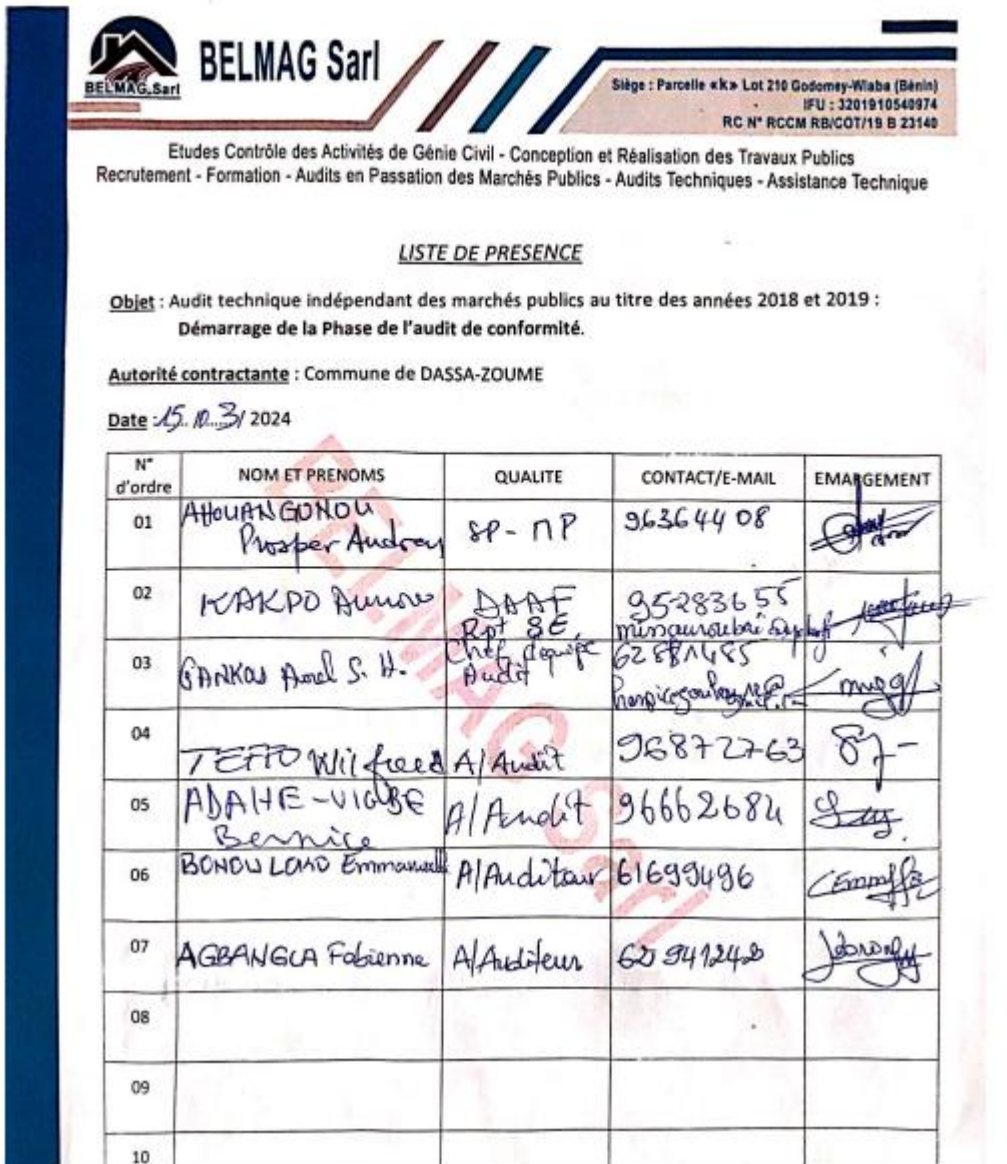 BELMAG.Sarl
BELMAG Sarl
Siège : Parcelle «k» Lot 210 Godomey-Wlaba (Bénin)
IFU : 3201910540974
RC N° RCCM RB/COT/19 B 23140
Etudes Contrôle des Activités de Génie Civil - Conception et Réalisation des Travaux Publics
Recrutement - Formation - Audits en Passation des Marchés Publics - Audits Techniques - Assistance Technique
LISTE DE PRESENCE
Objet : Audit technique indépendant des marchés publics au titre des années 2018 et 2019 :
Démarrage de la Phase de l'audit de conformité.
Autorité contractante : Commune de DASSA-ZOUME
Date : 15 / 2024
N° d'ordre NOM ET PRENOMS QUALITE CONTACT/E-MAIL EMARGEMENT
01 AHOUANGONOU Prosper SP-MP 96364408
02 KAKPO DAAF Rpt SE 95283655
03 S. H. Chef d'équipe Audit
04 Wilfreed A/Audit 96872763
05 Bernice A/Audit 96662684
06 Emmanuel A/Auditeur 61699496
07 AGBANGLA Fabienne A/Auditeur
08
09
10
BELMAG Sarl